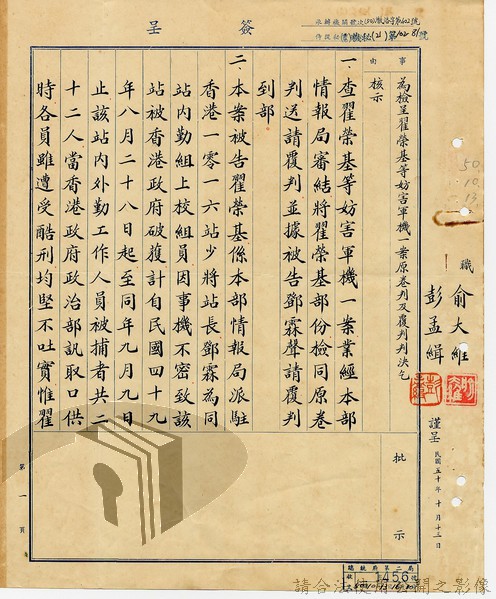 簽
呈
事由
為檢呈翟榮基等妨害軍機一案原卷判及覆判判決乞
核示
一、查翟榮基等妨害軍機一案業經本部
情報局審結將翟榮基部份檢同原卷
判送請覆判並據被告鄧霖聲請覆判
到部
二、本案被告翟榮基係本部情報局派駐
香港一零一六站少將站長鄧霖為同
站內勤組上校組員因事機不密致該
站被香港政府破獲計自民國四十九
年八月二十八日起至同年九月九日
止該站內外勤工作人員被捕者共二
十二人當香港政府政治部訊取口供
時各員雖遭受酷刑均堅不吐實惟翟
職
俞大維
彭孟緝
謹呈
民國五十年十月十三日
批示
第一頁
50.10.13.
總統府第二局
1456
請合法使用公開之影像